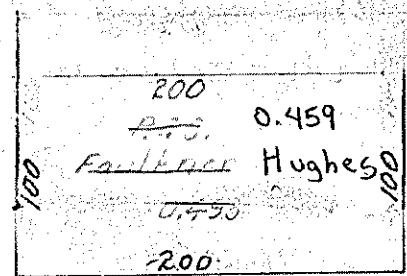 200
0.459
Faulkner Hughes
100 100
200